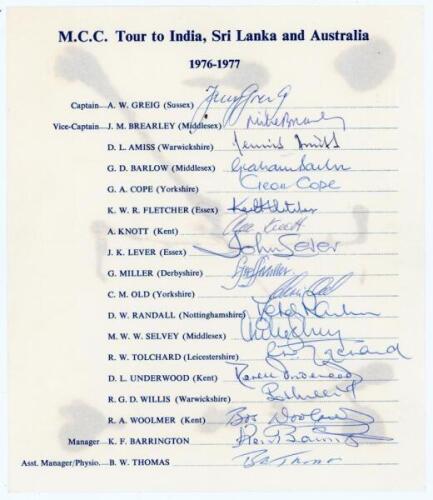 M.C.C. Tour to India, Sri Lanka and Australia
1976-1977
Captain A. W. GREIG (Sussex) Tony Greig
Vice-Captain J. M. BREARLEY (Middlesex) Mike Brearley
D. L. AMISS (Warwickshire) Dennis Amiss
G. D. BARLOW (Middlesex) Graham Barlow
G. A. COPE (Yorkshire) Geoff Cope
K. W. R. FLETCHER (Essex) Keith Fletcher
A. KNOTT (Kent) Alan Knott
J. K. LEVER (Essex) John Lever
G. MILLER (Derbyshire) Geoff Miller
C. M. OLD (Yorkshire) Chris Old
D. W. RANDALL (Nottinghamshire) Derek Randall
M. W. W. SELVEY (Middlesex)
R. W. TOLCHARD (Leicestershire) Tolchard
D. L. UNDERWOOD (Kent) Derek Underwood
R. G. D. WILLIS (Warwickshire)
R. A. WOOLMER (Kent) Bob Woolmer
Manager K. F. BARRINGTON Ken Barrington
Asst. Manager/Physio. B. W. THOMAS B. Thomas